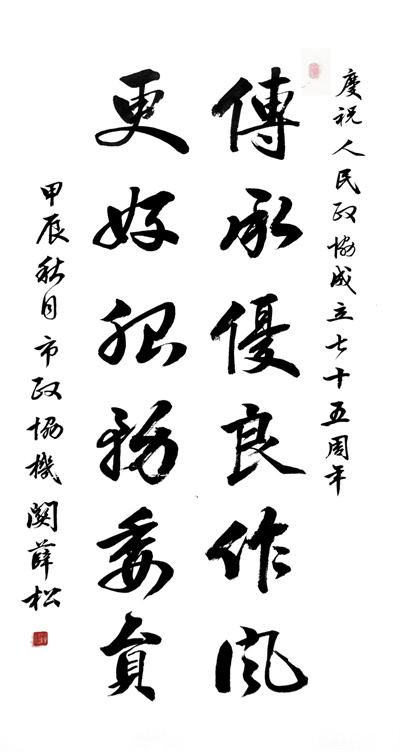 慶祝人民政協成立七十五周年
傳承優良作風
更好服務委員
甲辰秋月市政協機関薛松